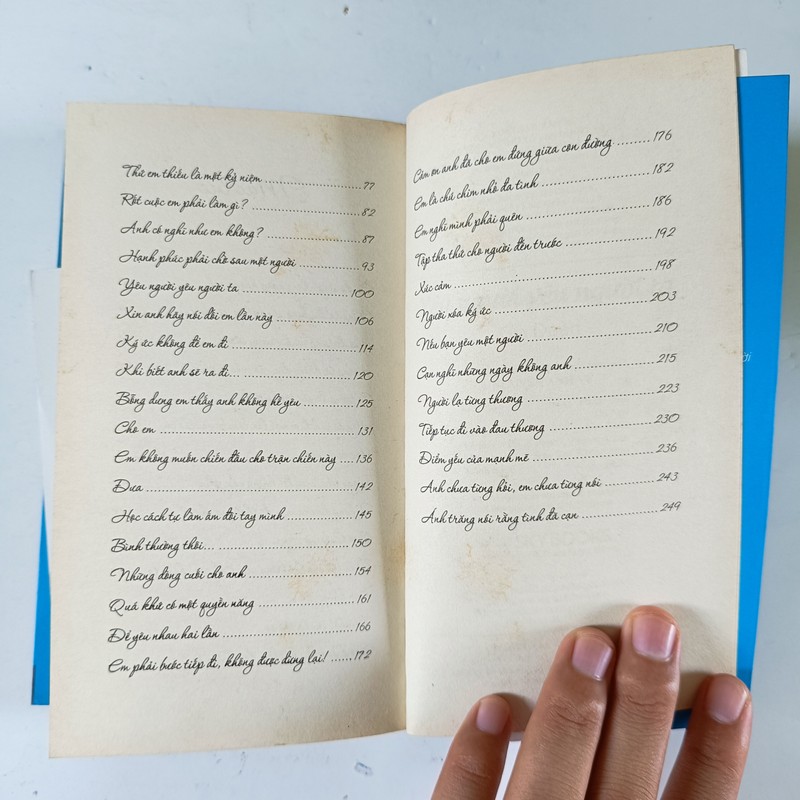 Thứ em thiếu là một kỷ niệm ........................77
Rốt cuộc em phải làm gì? ........................82
Anh có nghĩ như em không? ........................87
Hạnh phúc phải chờ sau một người ...............93
Yêu người yêu người ta ........................100
Xin anh hãy nói dối em lần này ...................106
Ký ức không để em đi ........................114
Khi biết anh sẽ ra đi... ........................120
Bỗng dưng em thấy anh không hề yêu ............125
Cho em ........................131
Em không muốn chiến đấu cho trận chiến này ....136
Đưa ........................142
Học cách tự làm ấm đôi tay mình .................145
Bình thường thôi... ........................150
Những dòng cuối cho anh ........................154
Quá khứ có một quyền năng ........................161
Để yêu nhau hai lần ........................166
Em phải bước tiếp đi, không được dừng lại! ......172
Cảm ơn anh đã cho em đứng giữa con đường ........176
Em là chú chim nhỏ đa tình ........................182
Em nghĩ mình phải quên ........................186
Tập tha thứ cho người đến trước ...................192
Xúc cảm ........................198
Người xóa ký ức ........................203
Nếu bạn yêu một người ........................210
Cạn nghĩ những ngày không anh ...................215
Người lạ từng thương ........................223
Tiếp tục đi vào đau thương ........................230
Điểm yếu của mạnh mẽ ........................236
Anh chưa từng hỏi, em chưa từng nói .............243
Ánh trăng nói rằng tình đã cạn ...................249